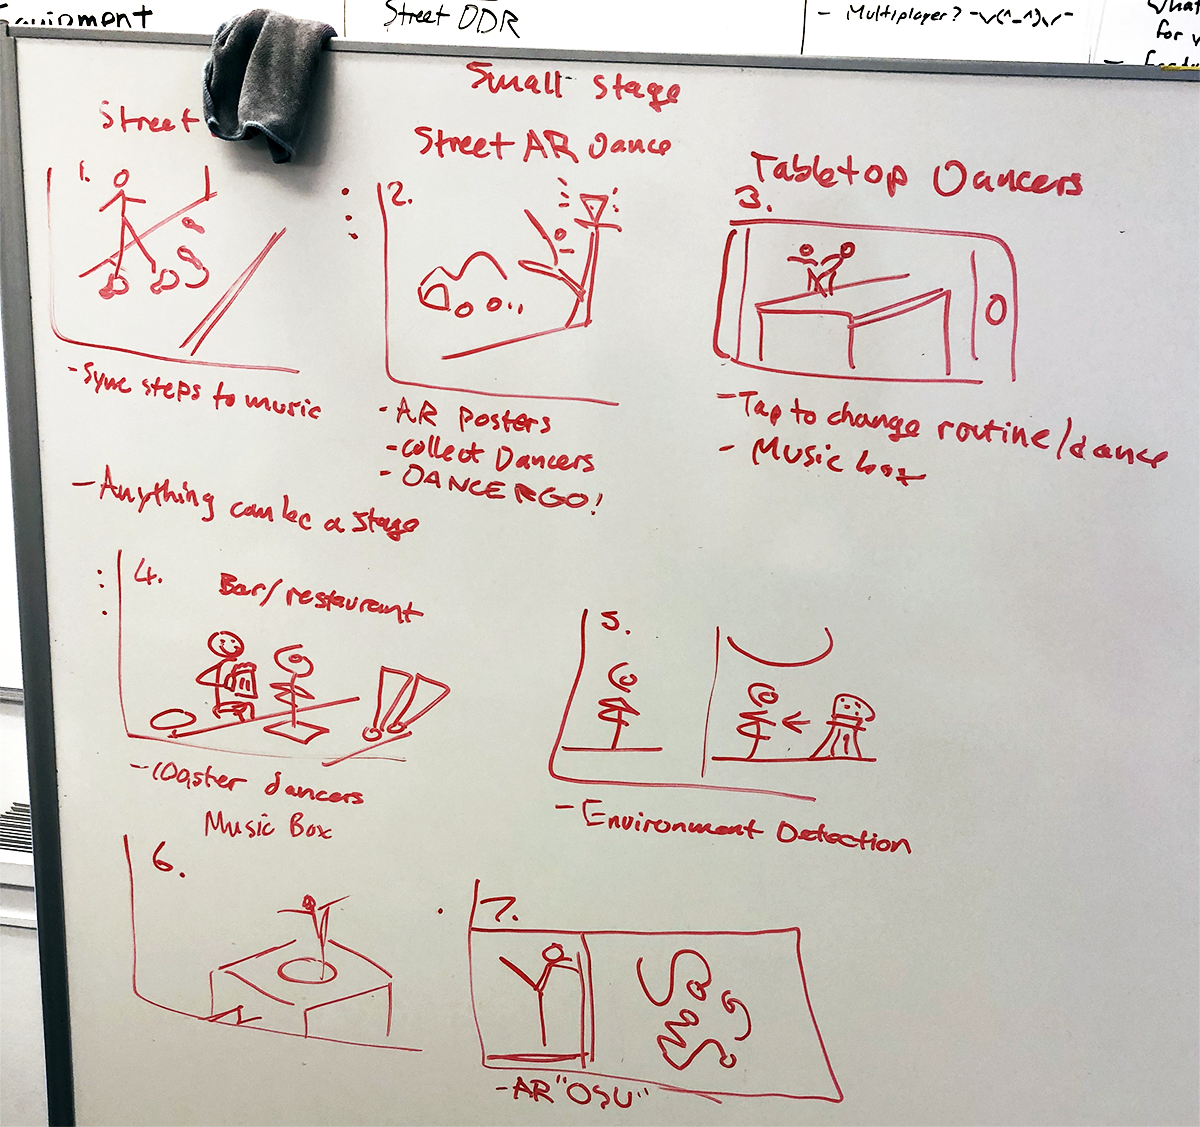 Equipment
Street DDR
- Multiplayer? ¯\√(^_^)√/¯
What
for v
Small stage
Street
Street AR Dance
Tabletop Dancers
1.
2.
3.
- Sync steps to music
- AR posters
- collect Dancers
- DANCE GO!
- Tap to change routine/dance
- Music box
- Anything can be a stage
4.
Bar/restaurant
5.
- Coaster dancers
- Environment Detection
Music Box
6.
7.
- AR "OSU"